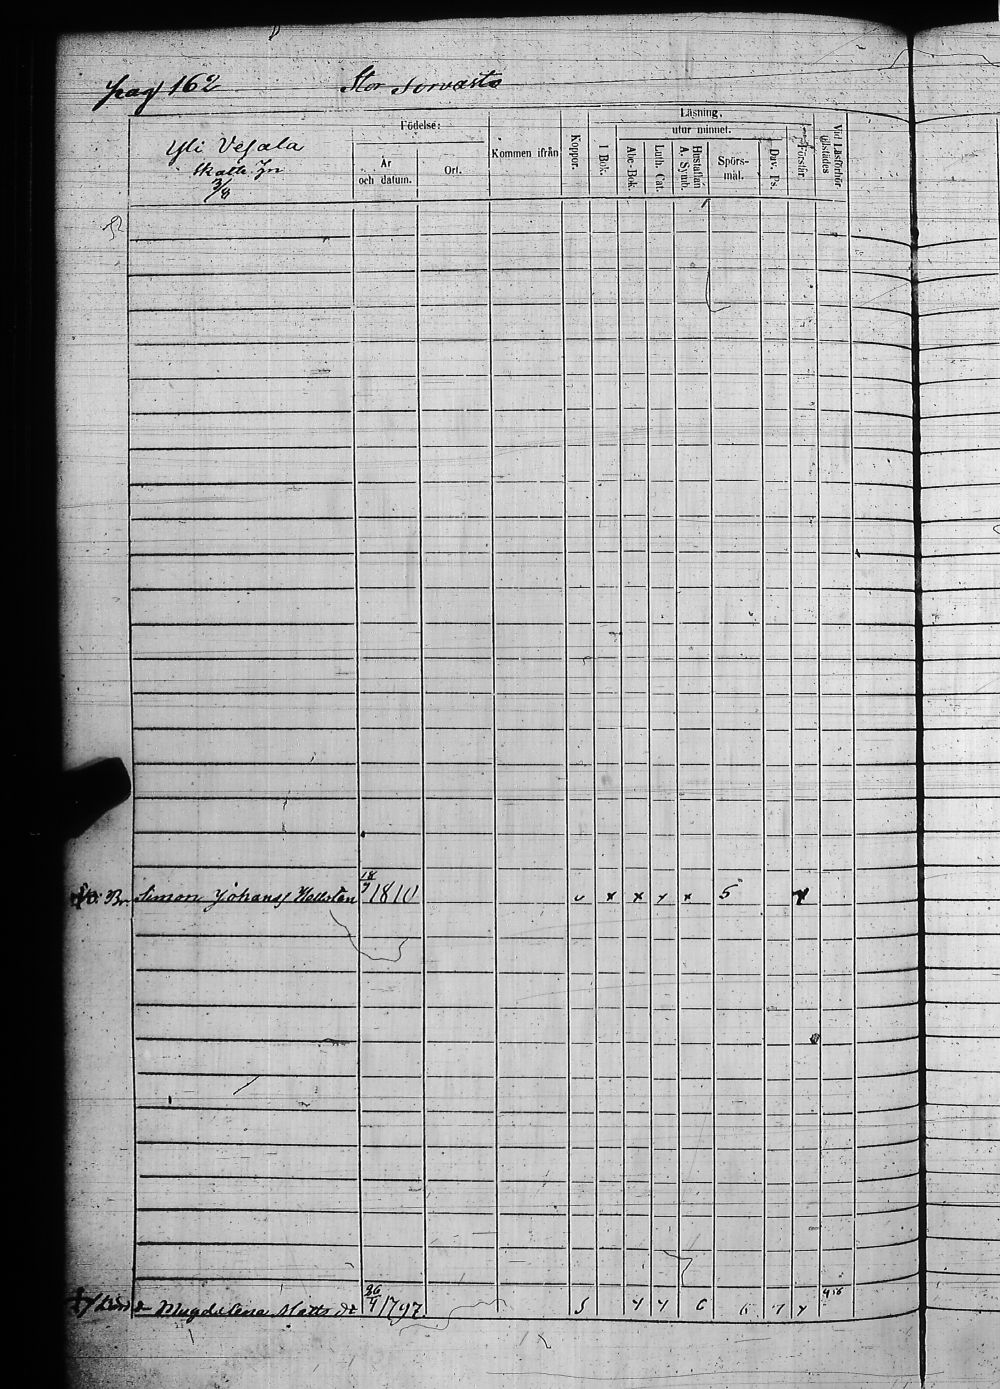 pag 162 Stor Sorvasto
Yli Vesala
Skatte
3/8
Födelse:
År
och datum.
Ort.
Kommen ifrån
Koppor.
Läsning.
utur minnet.
I Bok.
Abc-Bok.
Luth. Cat.
Hustaflan
A. Symb.
Spörs-
mål.
Dav. Ps.
Förstår.
Vid Läsförhör
tillstädes
Br. Simon Johanss Hellsten 18/7 1810 v x x y x 5 x
Magdelena Matts dr 26/4 1797 S y y 6 6 y y